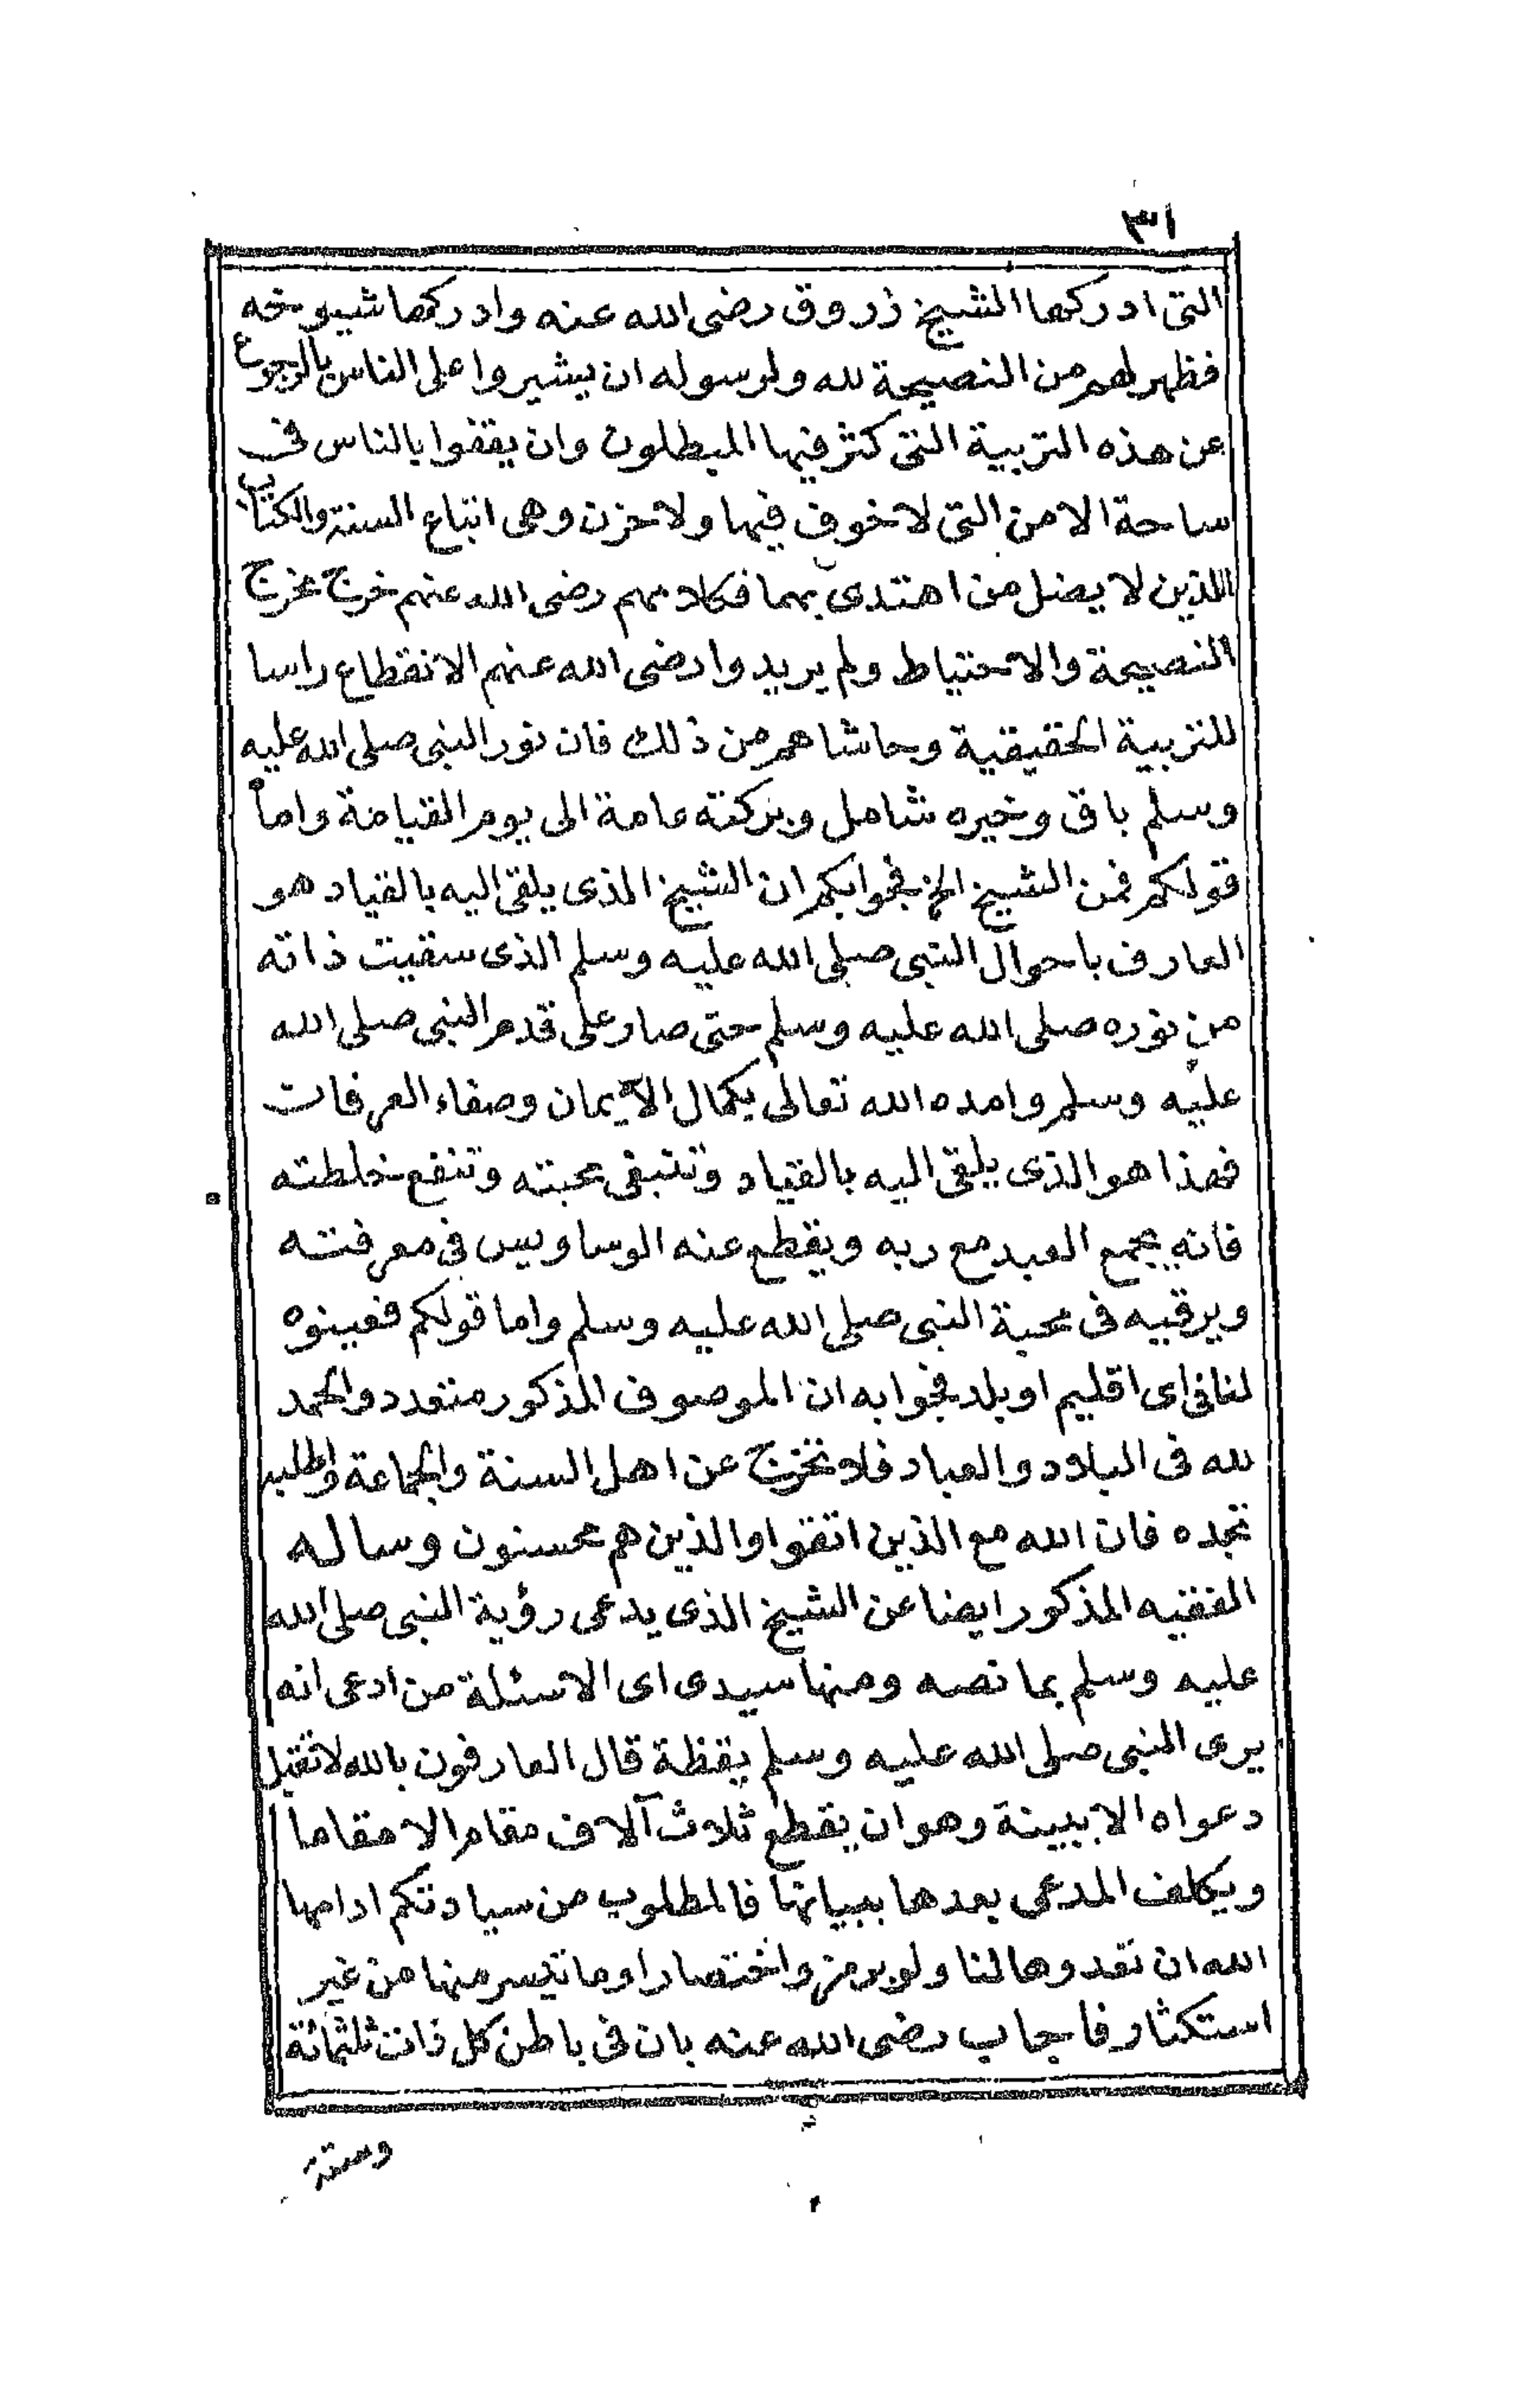 ٣١
التى ادركها الشيخ زروق رضى الله عنه وادركها شيوخه
فظهر لهم من النصيحة لله ولرسوله ان يشيروا على الناس بالرجوع
عن هذه التربية التى كثر فيها المبطلون وان يقفوا بالناس فى
ساحة الامن التى لا خوف فيها ولا حزن وهى اتباع السنة والكتاب
اللذين لا يضل من اهتدى بهما فكلامهم رضى الله عنهم خرج مخرج
النصيحة والاحتياط ولم يريدوا رضى الله عنهم الانقطاع راسا
للتربية الحقيقية وحاشاهم من ذلك فان نور النبى صلى الله عليه
وسلم باق وخيره شامل وبركته عامة الى يوم القيامة واما
قولكم فمن الشيخ الخ فجوابكم ان الشيخ الذى يلقى اليه بالقياد هو
العارف باحوال النبى صلى الله عليه وسلم الذى سقيت ذاته
من نوره صلى الله عليه وسلم حتى صار على قدم النبى صلى الله
عليه وسلم وامده الله تعالى بكمال الايمان وصفاء العرفات
فهذا هو الذى يلقى اليه بالقياد وتنبغى محبته وتنفع خلطته
فانه يجمع العبد مع ربه ويقطع عنه الوساويس فى معرفته
ويرقيه فى محبة النبى صلى الله عليه وسلم واما قولكم فعينوه
لنا فى اى اقليم او بلد فجوابه ان الموصوف المذكور متعدد والحمد
لله فى البلاد والعباد فلا تخرج عن اهل السنة والجماعة واطلبه
تجده فان الله مع الذين اتقوا والذين هم محسنون وساله
الفقيه المذكور ايضا عن الشيخ الذى يدعى رؤية النبى صلى الله
عليه وسلم بما نصه ومنها سيدى اى الاسئلة من ادعى انه
يرى النبى صلى الله عليه وسلم يقظة قال العارفون بالله لا تقبل
دعواه الا ببينة وهو ان يقطع ثلاث آلاف مقام الا مقاما
ويكلف المدعى بعدها ببيانها فالمطلوب من سيادتكم ادامها
الله ان تعدوها لنا ولو برمز واختصارا وما تيسر منها من غير
استكثار فاجاب رضى الله عنه بان فى باطن كل ذات ثلثمائة
وستة